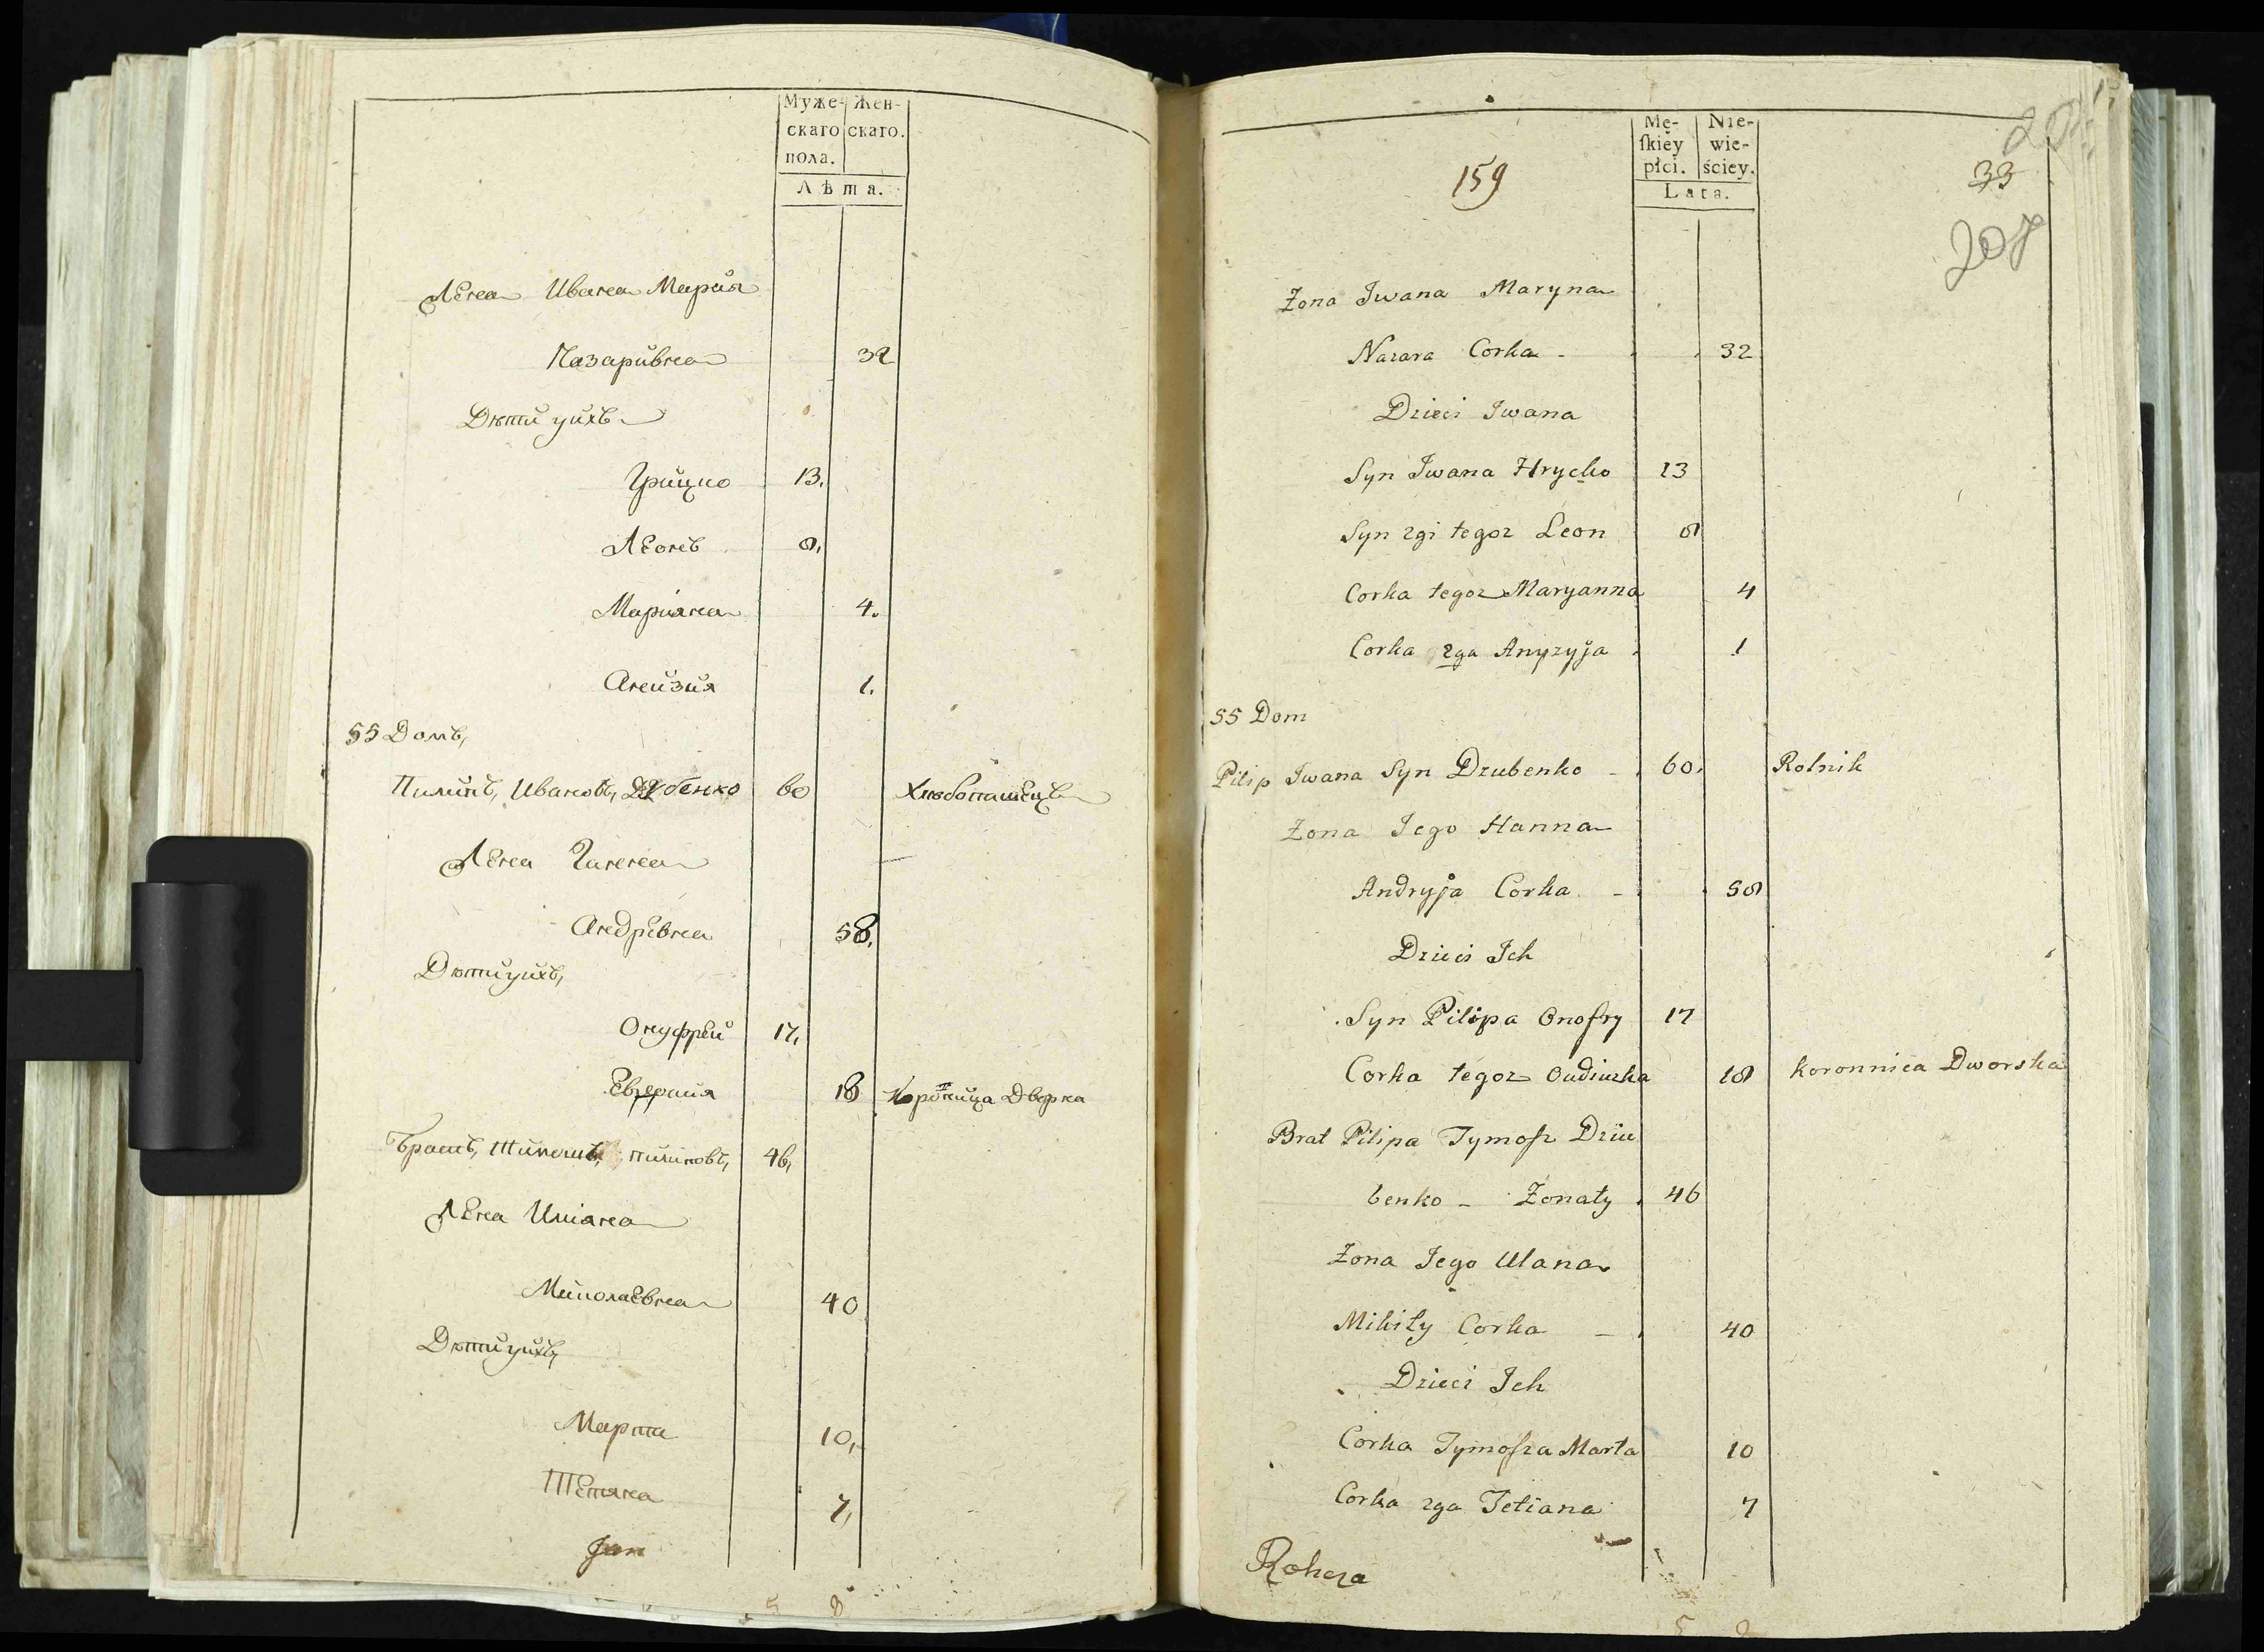 Муже- Жен-
скаго скаго.
пола.
Лѣта.
Жена Ивана Марія
Назаривна 32
Дѣти ихъ
Грицко 13.
Леонъ 8.
Маріяна 4.
Анизия 1.
55 Домъ,
Пилипъ, Ивановъ, Дзюбенко 60 Хлѣбопашецъ
Жена Ганна
Андріевна 58.
Дѣти ихъ,
Онуфрей 17.
18 Дворка
Братъ, 46,
Жена Уліана
40
Дѣти ихъ,
Марта 10,
Тетяна 7,
Jan
5 8
Mę- Nie-
ſkiey wie-
płci. ściey.
Lata.
159
33
207
Zona Iwana Maryna
Nazara Corka - 32
Dzieci Iwana
Syn Iwana Hrycko 13
Syn 2gi tegoz Leon 8
Corka tegoz Maryanna 4
Corka 2ga Anyzyja 1
55 Dom
Pilip Iwana Syn Dzubenko - 60. Rolnik
Zona Jego Hanna
Andryja Corka - 58
Dzieci Ich
Syn Pilipa Onofry 17
Corka tegoz Oudiuzka 18 koronnica Dworska
Brat Pilipa Tymosz Dziu
benko - Żonaty 46
Zona Jego Ulana
Mikity Corka - 40
Dzieci Ich
Corka Tymosza Marta 10
Corka 2ga Tetiana 7
Rohoza
5 8